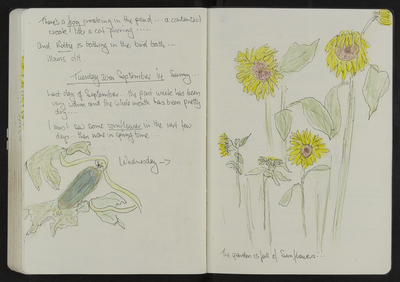 There's a frog croaking in the pond... a contented
croak! like a cat purring.....
And Robbie is bathing in the bird bath...
Mains off
Tuesday 30th September '14 Sunny...
Last day of September... the past week has been
very warm and the whole month has been pretty
dry....
I must sow some in the next few
days. then more in springtime....
Wednesday →
The garden is full of Sunflowers...